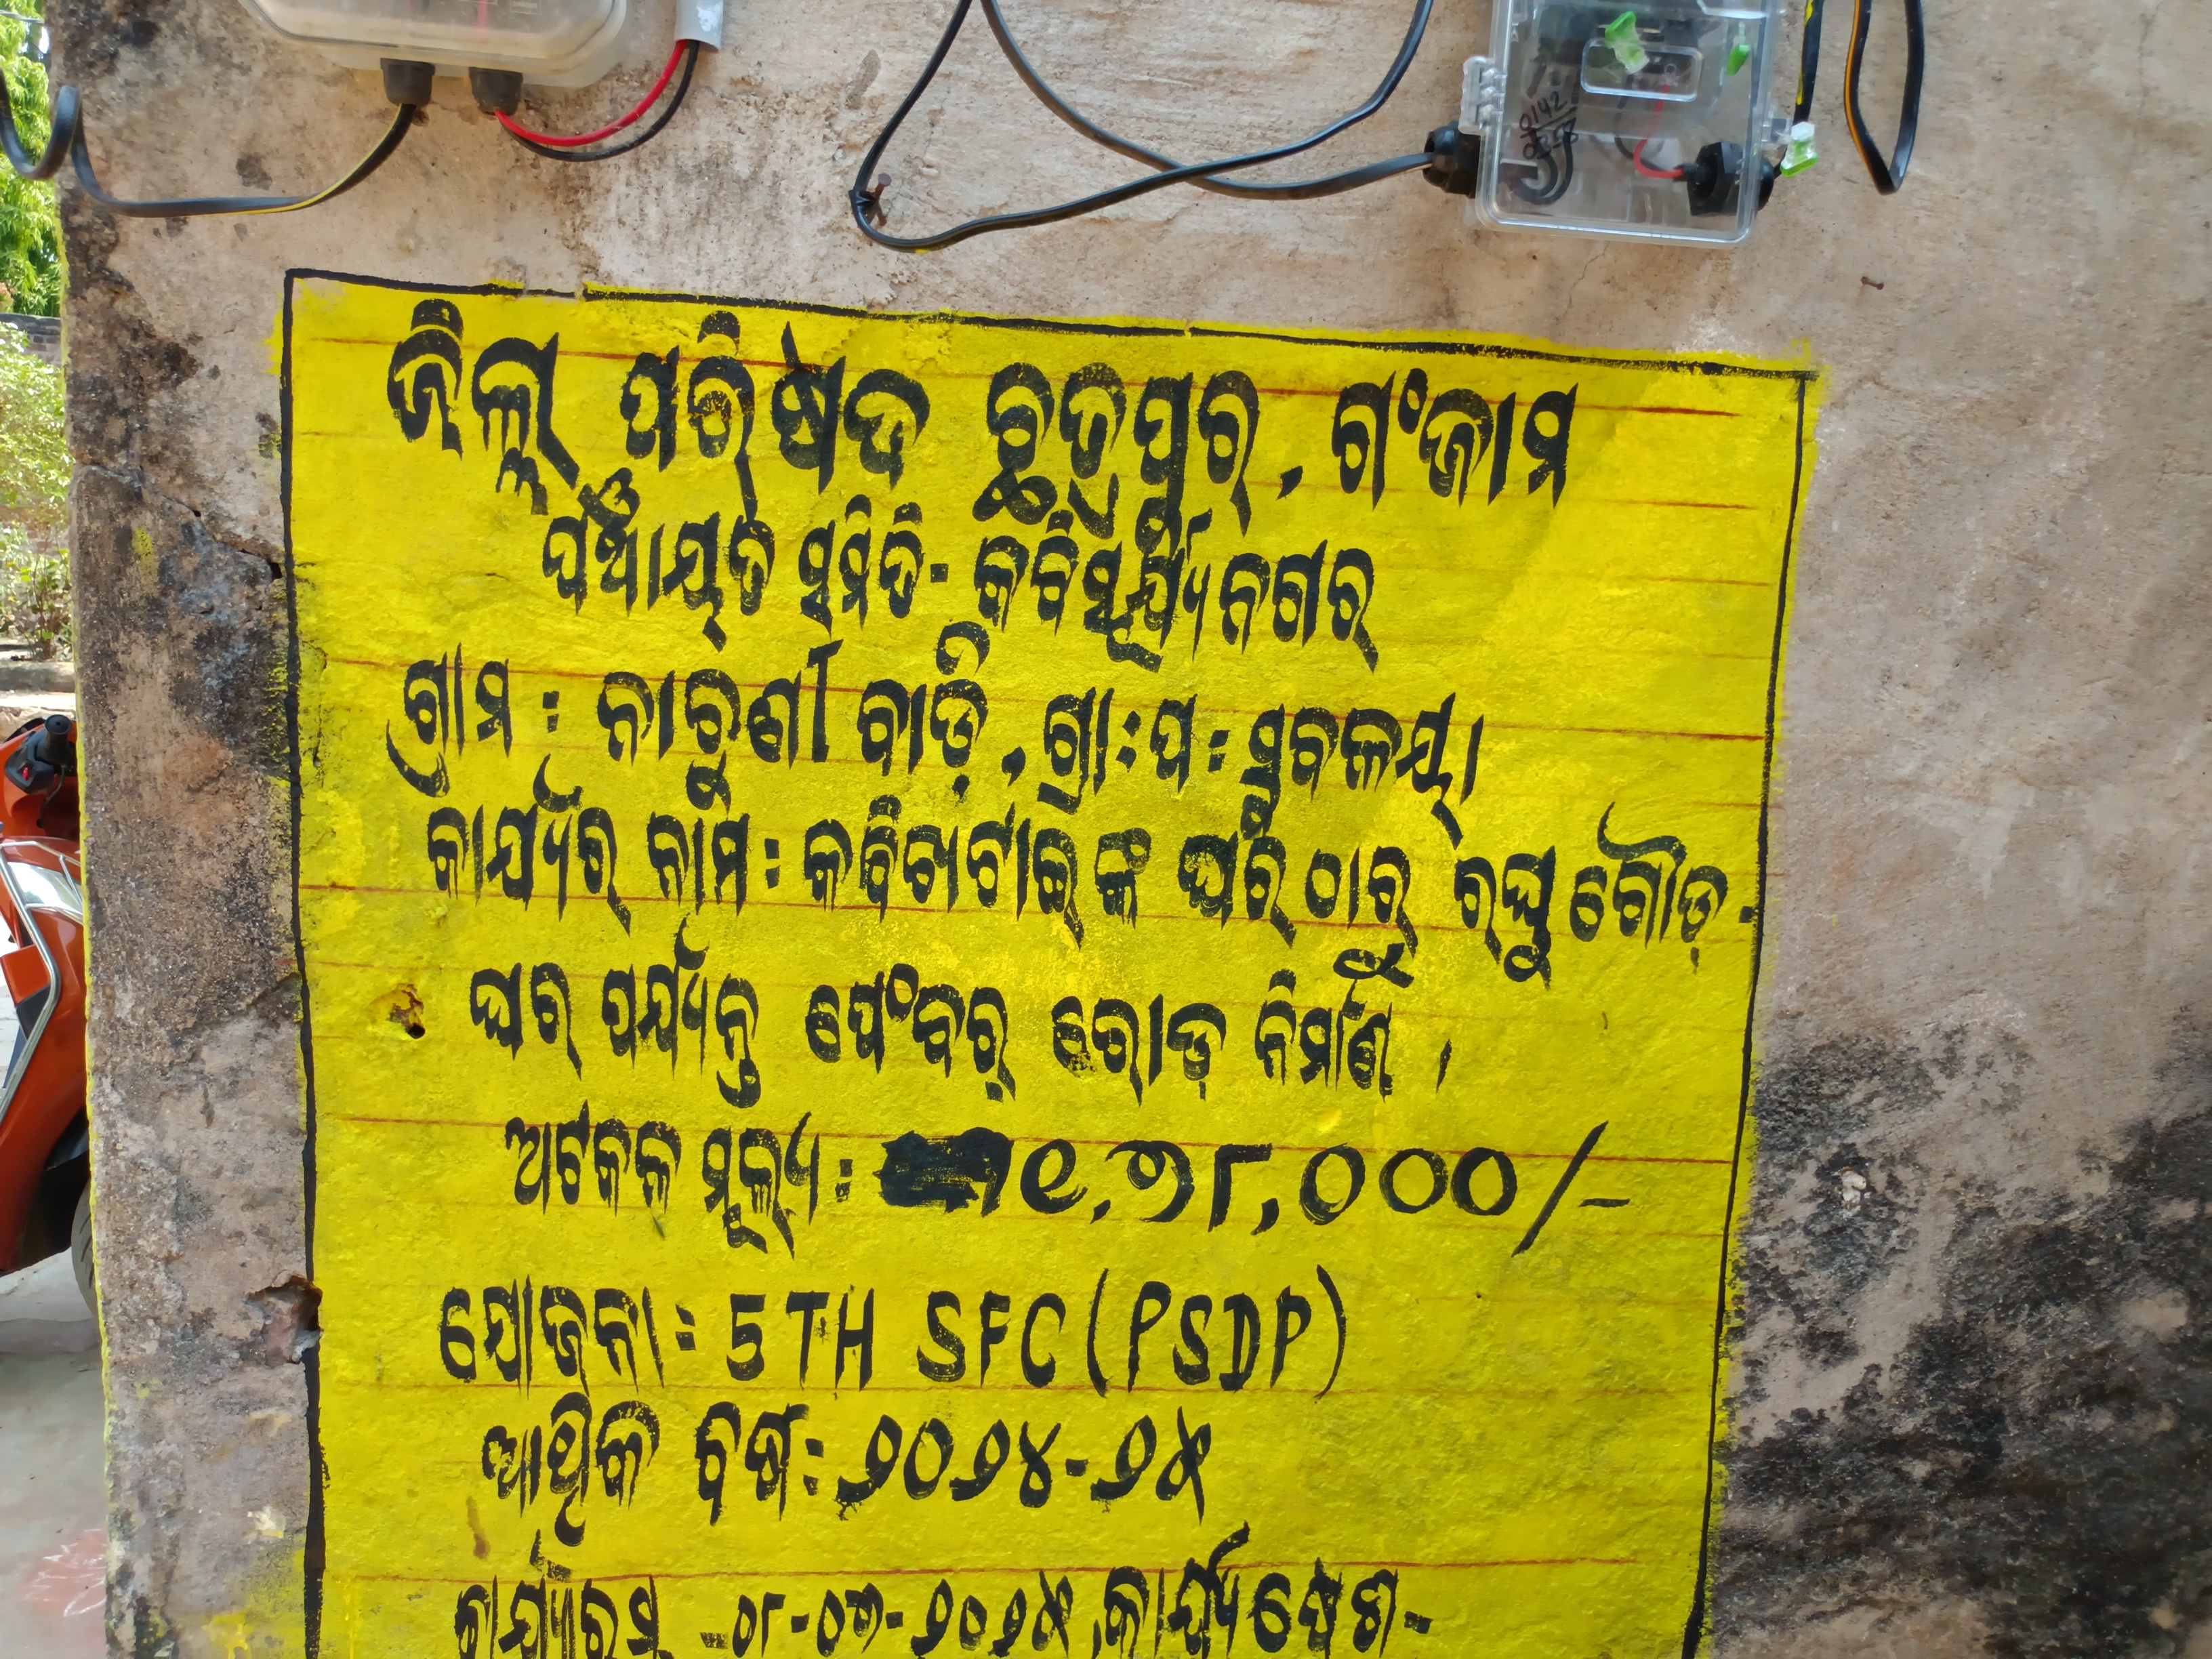 0142
0358
ଜିଲ୍ଲା ପରିଷଦ ଛତ୍ରପୁର, ଗଂଜାମ
ପଞ୍ଚାୟତ ସମିତି- କବିସୂର୍ଯ୍ୟନଗର
ଗ୍ରାମ : ନାରୁଣୀ ବାଡ଼ି, ଗ୍ରା:ପ: ସୁବଳୟା
କାର୍ଯ୍ୟର ନାମ: କବିଖଟାଇ ଙ୍କ ଘର ଠାରୁ ରଘୁ ଗୌଡ଼-
ଘର ପର୍ଯ୍ୟନ୍ତ ପେଂବର୍ ରୋଡ଼ ନିର୍ମାଣ ।
ଅଟକଳ ମୂଲ୍ୟ: ୧,୭୮,୦୦୦/-
ଯୋଜନା: 5TH SFC (PSDP)
ଆର୍ଥିକ ବର୍ଷ: ୨୦୨୪-୨୫
କାର୍ଯ୍ୟାରମ୍ଭ -୦୮-୦୩-୨୦୨୫,କାର୍ଯ୍ୟଶେଷ-